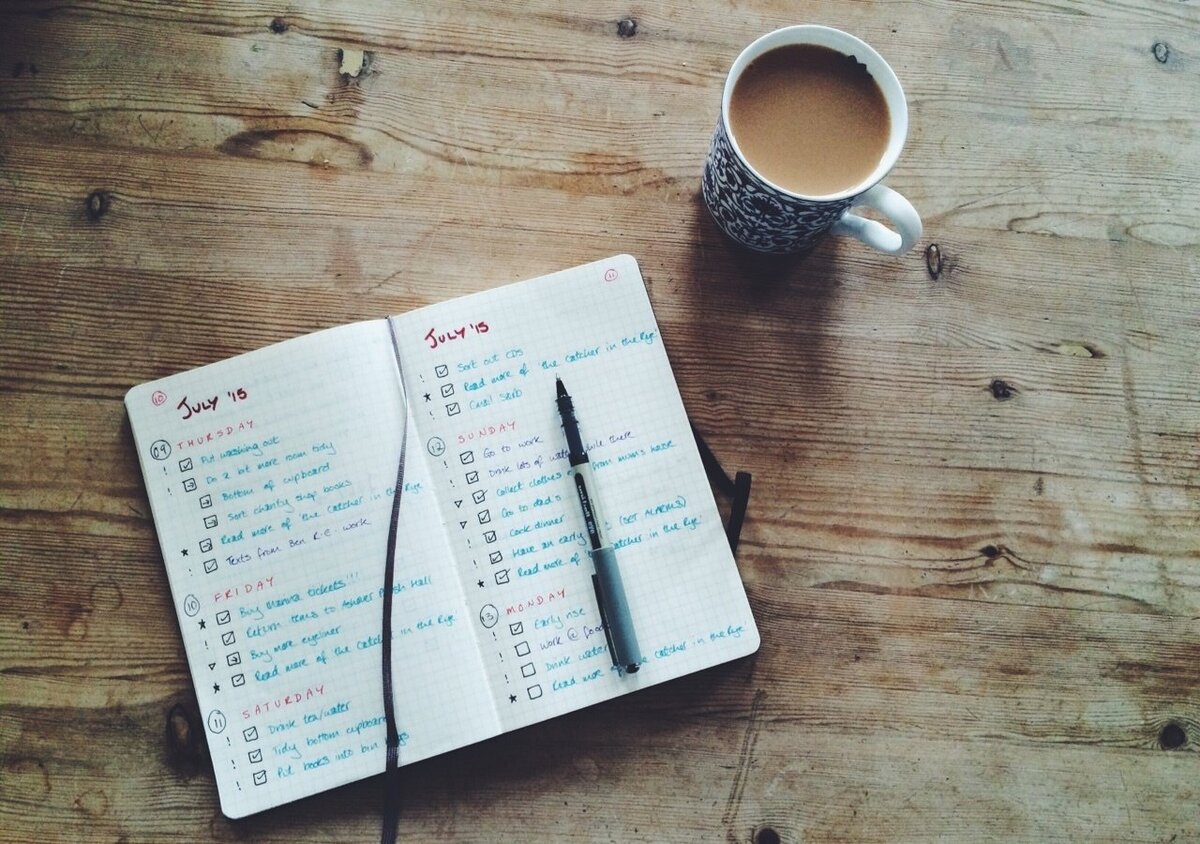 10
JULY '15
09 THURSDAY
Put washing out
Do a bit more room tidy
Bottom of cupboard
Sort charity shop books
Read more of the catcher in the Rye
Texts from Ben R.E. work
10 FRIDAY
Buy Marina tickets!!!
Return items to Hall
Buy more eyeliner
Read more of the catcher in the Rye
11 SATURDAY
Drink tea/water
Tidy bottom cupboard
Put books into bin
11
JULY '15
Sort out CDs
Read more of the catcher in the Rye!
Email
12 SUNDAY
Go to work
Drink lots of water while there
Collect clothes from mum's house
Go to dad's
Cook dinner
Have an early (SET ALARMS)
Read more of catcher in the Rye!
13 MONDAY
Early rise
Work @
Drink water
Read more of the catcher in the Rye